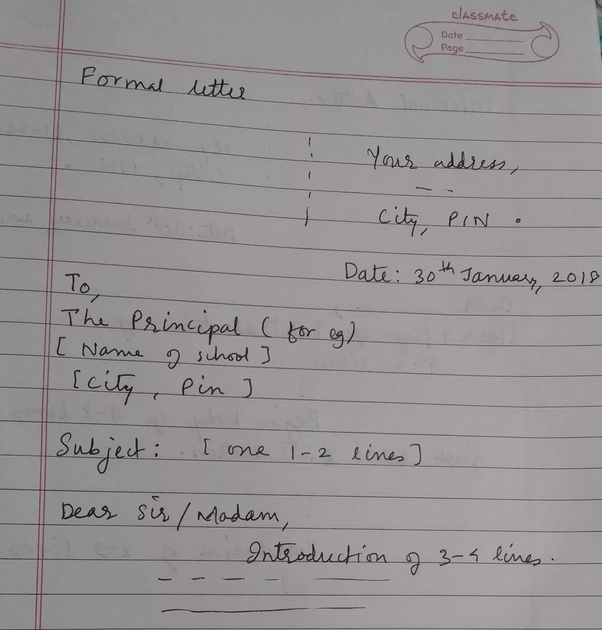 classmate
Date
Page
Formal letter
Your address,
City, PIN .
Date: 30th January, 2018
To,
The Principal ( for eg)
[ Name of school ]
[City , Pin ]
Subject: [ one 1-2 lines ]
Dear Sir / Madam,
Introduction of 3-4 lines.